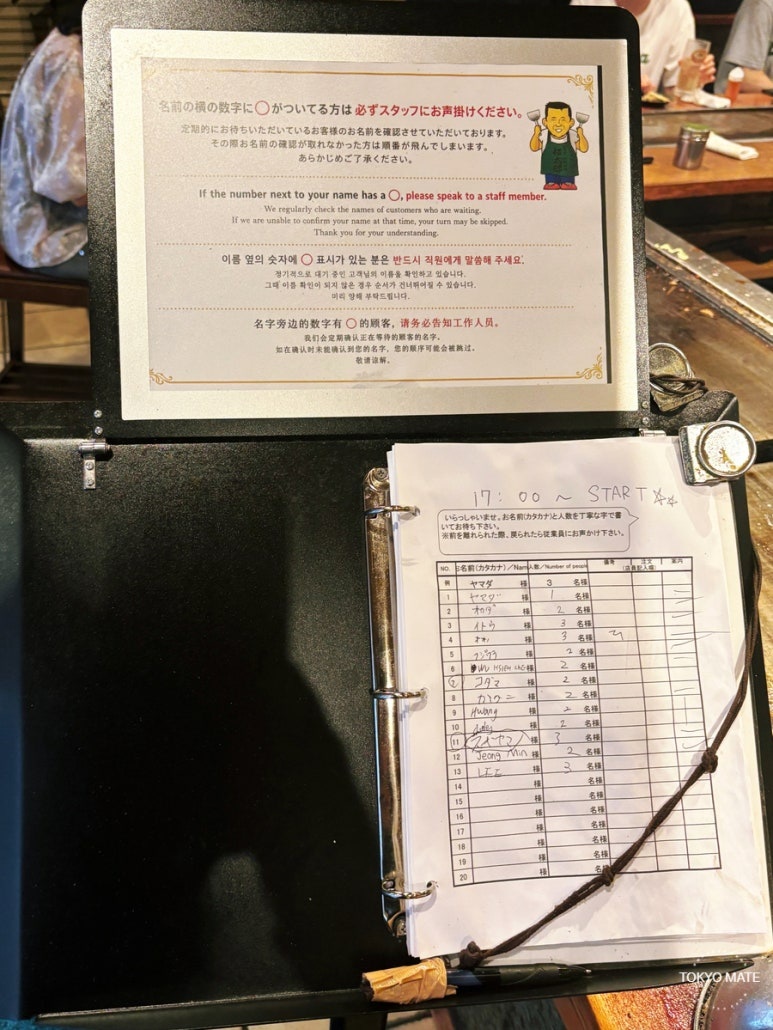 名前の横の数字に〇がついてる方は 必ずスタッフにお声掛けください。
定期的にお待ちいただいているお客様のお名前を確認させていただいております。
その際お名前の確認が取れなかった方は順番が飛んでしまいます。
あらかじめご了承ください。
If the number next to your name has a 〇, please speak to a staff member.
We regularly check the names of customers who are waiting.
If we are unable to confirm your name at that time, your turn may be skipped.
Thank you for your understanding.
이름 옆의 숫자에 〇 표시가 있는 분은 반드시 직원에게 말씀해 주세요.
정기적으로 대기 중인 고객님의 이름을 확인하고 있습니다.
그때 이름 확인이 되지 않은 경우 순서가 건너뛰어질 수 있습니다.
미리 양해 부탁드립니다.
名字旁边的数字有 〇 的顾客，请务必告知工作人员。
我们会定期确认正在等待的顾客的名字。
如在确认时未能确认到您的名字，您的顺序可能会被跳过。
敬请谅解。
17:00～ START☆☆
いらっしゃいませ。お名前(カタカナ)と人数を丁寧な字で書
いてお待ち下さい。
※前を離れられた際、戻られたら従業員にお声かけ下さい。
NO. お名前(カタカナ)／Nam 人数／Number of people 備考 注文 案内
(店員記入欄)
例 ヤマダ 様 3 名様
1 ヤマダ 様 1 名様
2 オカダ 様 2 名様
3 イトウ 様 3 名様
4 様 3 名様
5 様 2 名様
6 HSIEH 様 2 名様
7 コダマ 様 2 名様
8 様 2 名様
9 Hwang 様 2 名様
10 様 2 名様
11 様 3 名様
12 Jeong Min 様 2 名様
13 LEE 様 3 名様
14 様 名様
15 様 名様
16 様 名様
17 様 名様
18 様 名様
19 様 名様
20 様 名様
TOKYO MATE